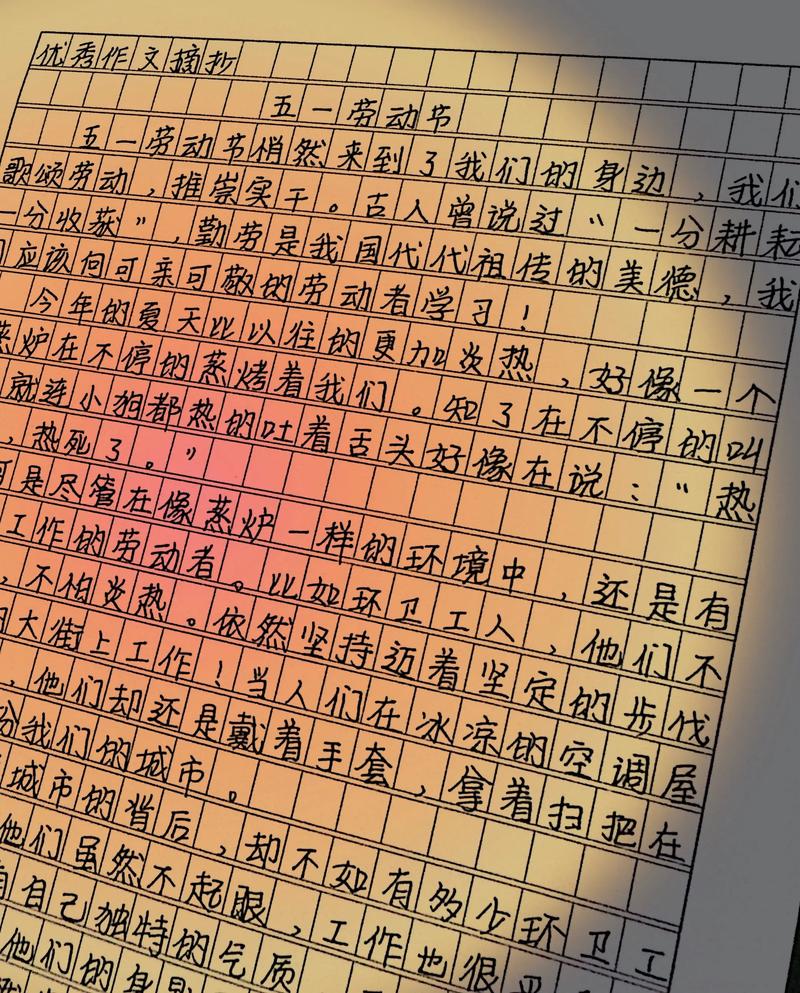 优秀作文摘抄
五一劳动节
五一劳动节悄然来到了我们的身边，我们
歌颂劳动，推崇实干。古人曾说过“一分耕耘
一分收获”，勤劳是我国代代祖传的美德，我
们应该向可亲可敬的劳动者学习！
今年的夏天比以往的更加炎热，好像一个
蒸炉在不停的蒸烤着我们。知了在不停的叫
就连小狗都热的吐着舌头好像在说：“热
，热死了。”
可是尽管在像蒸炉一样的环境中，还是有
工作的劳动者。比如环卫工人，他们不
，不怕炎热。依然坚持迈着坚定的步伐
大街上工作！当人们在冰凉的空调屋
，他们却还是戴着手套，拿着扫把在
我们的城市。
城市的背后，却不如有多少环卫工
他们虽然不起眼，工作也很
自己独特的气质
他们的身